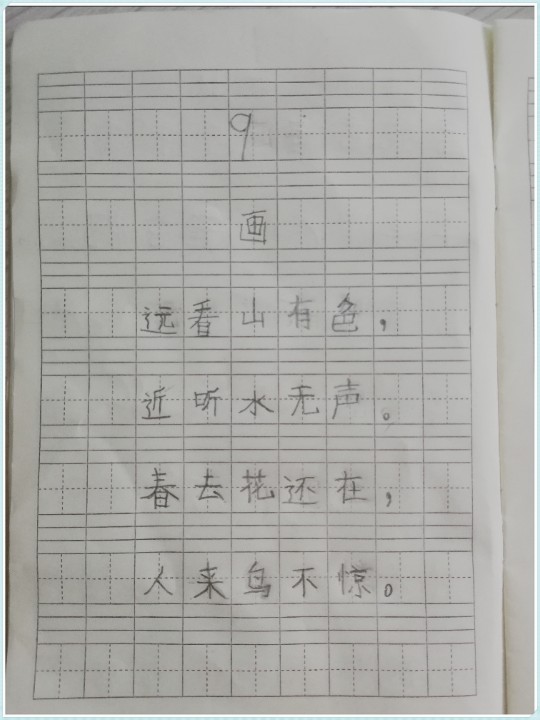 9
画
远看山有色，
近听水无声。
春去花还在，
人来鸟不惊。